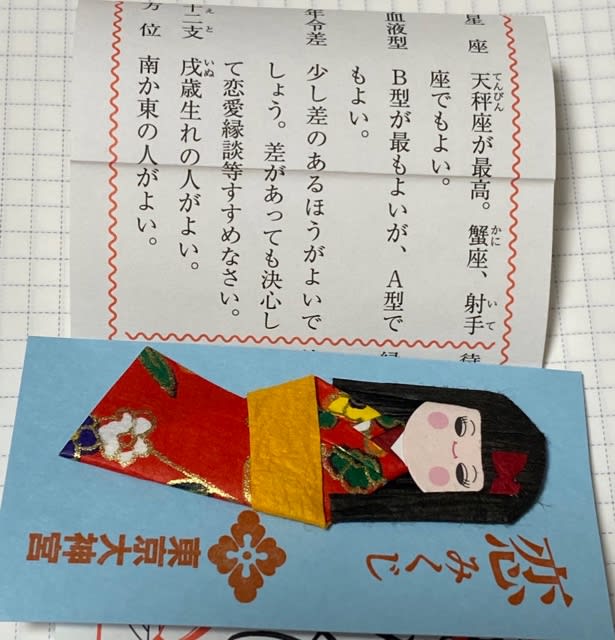 てんびん かに いて
星座 天秤座が最高。蟹座、射手
座でもよい。
血液型 B型が最もよいが、A型で
もよい。
年令差 少し差のあるほうがよいで
しょう。差があっても決心し
て恋愛縁談等すすめなさい。
えと いぬ
十二支 戌歳生れの人がよい。
方位 南か東の人がよい。
恋みくじ
東京大神宮